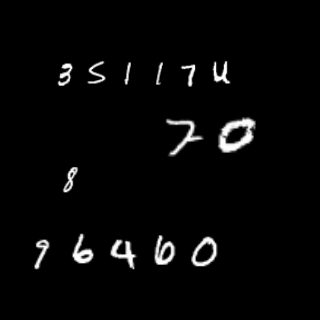 351174
70
8
96460